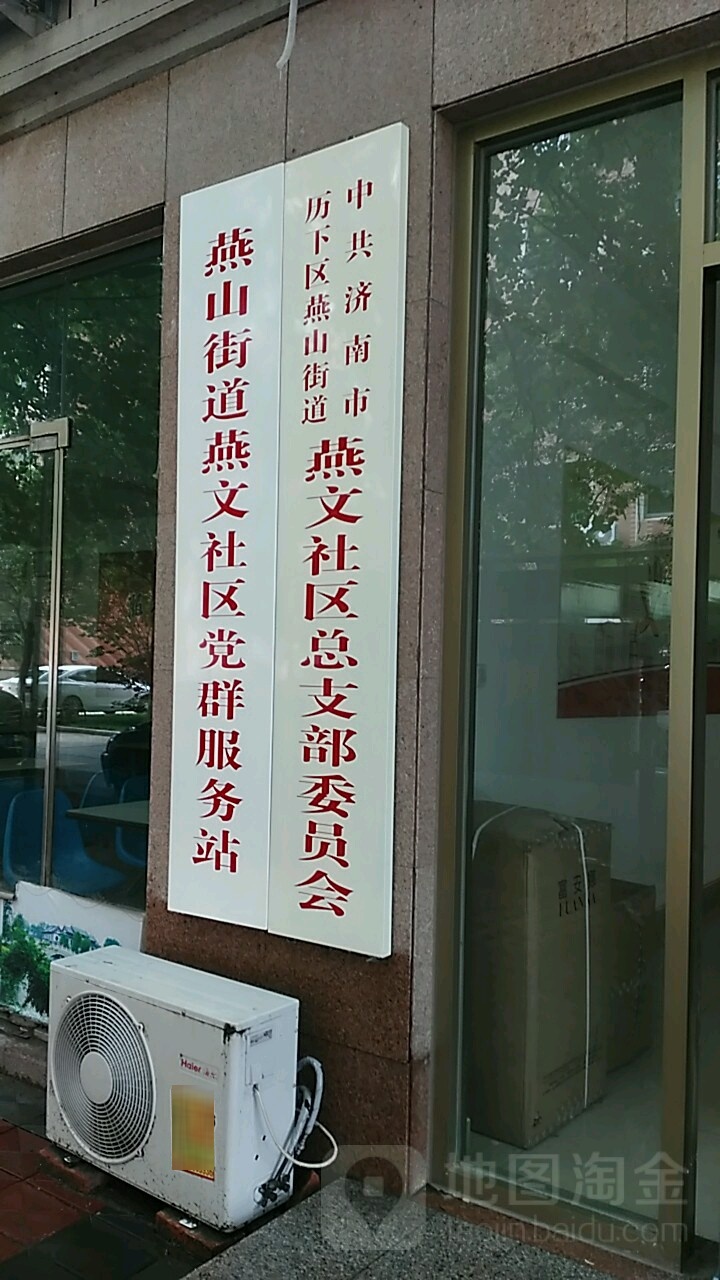 燕山街道燕文社区党群服务站
中共济南市
历下区燕山街道
燕文社区总支部委员会
Haier
地图淘金
taojin.baidu.com